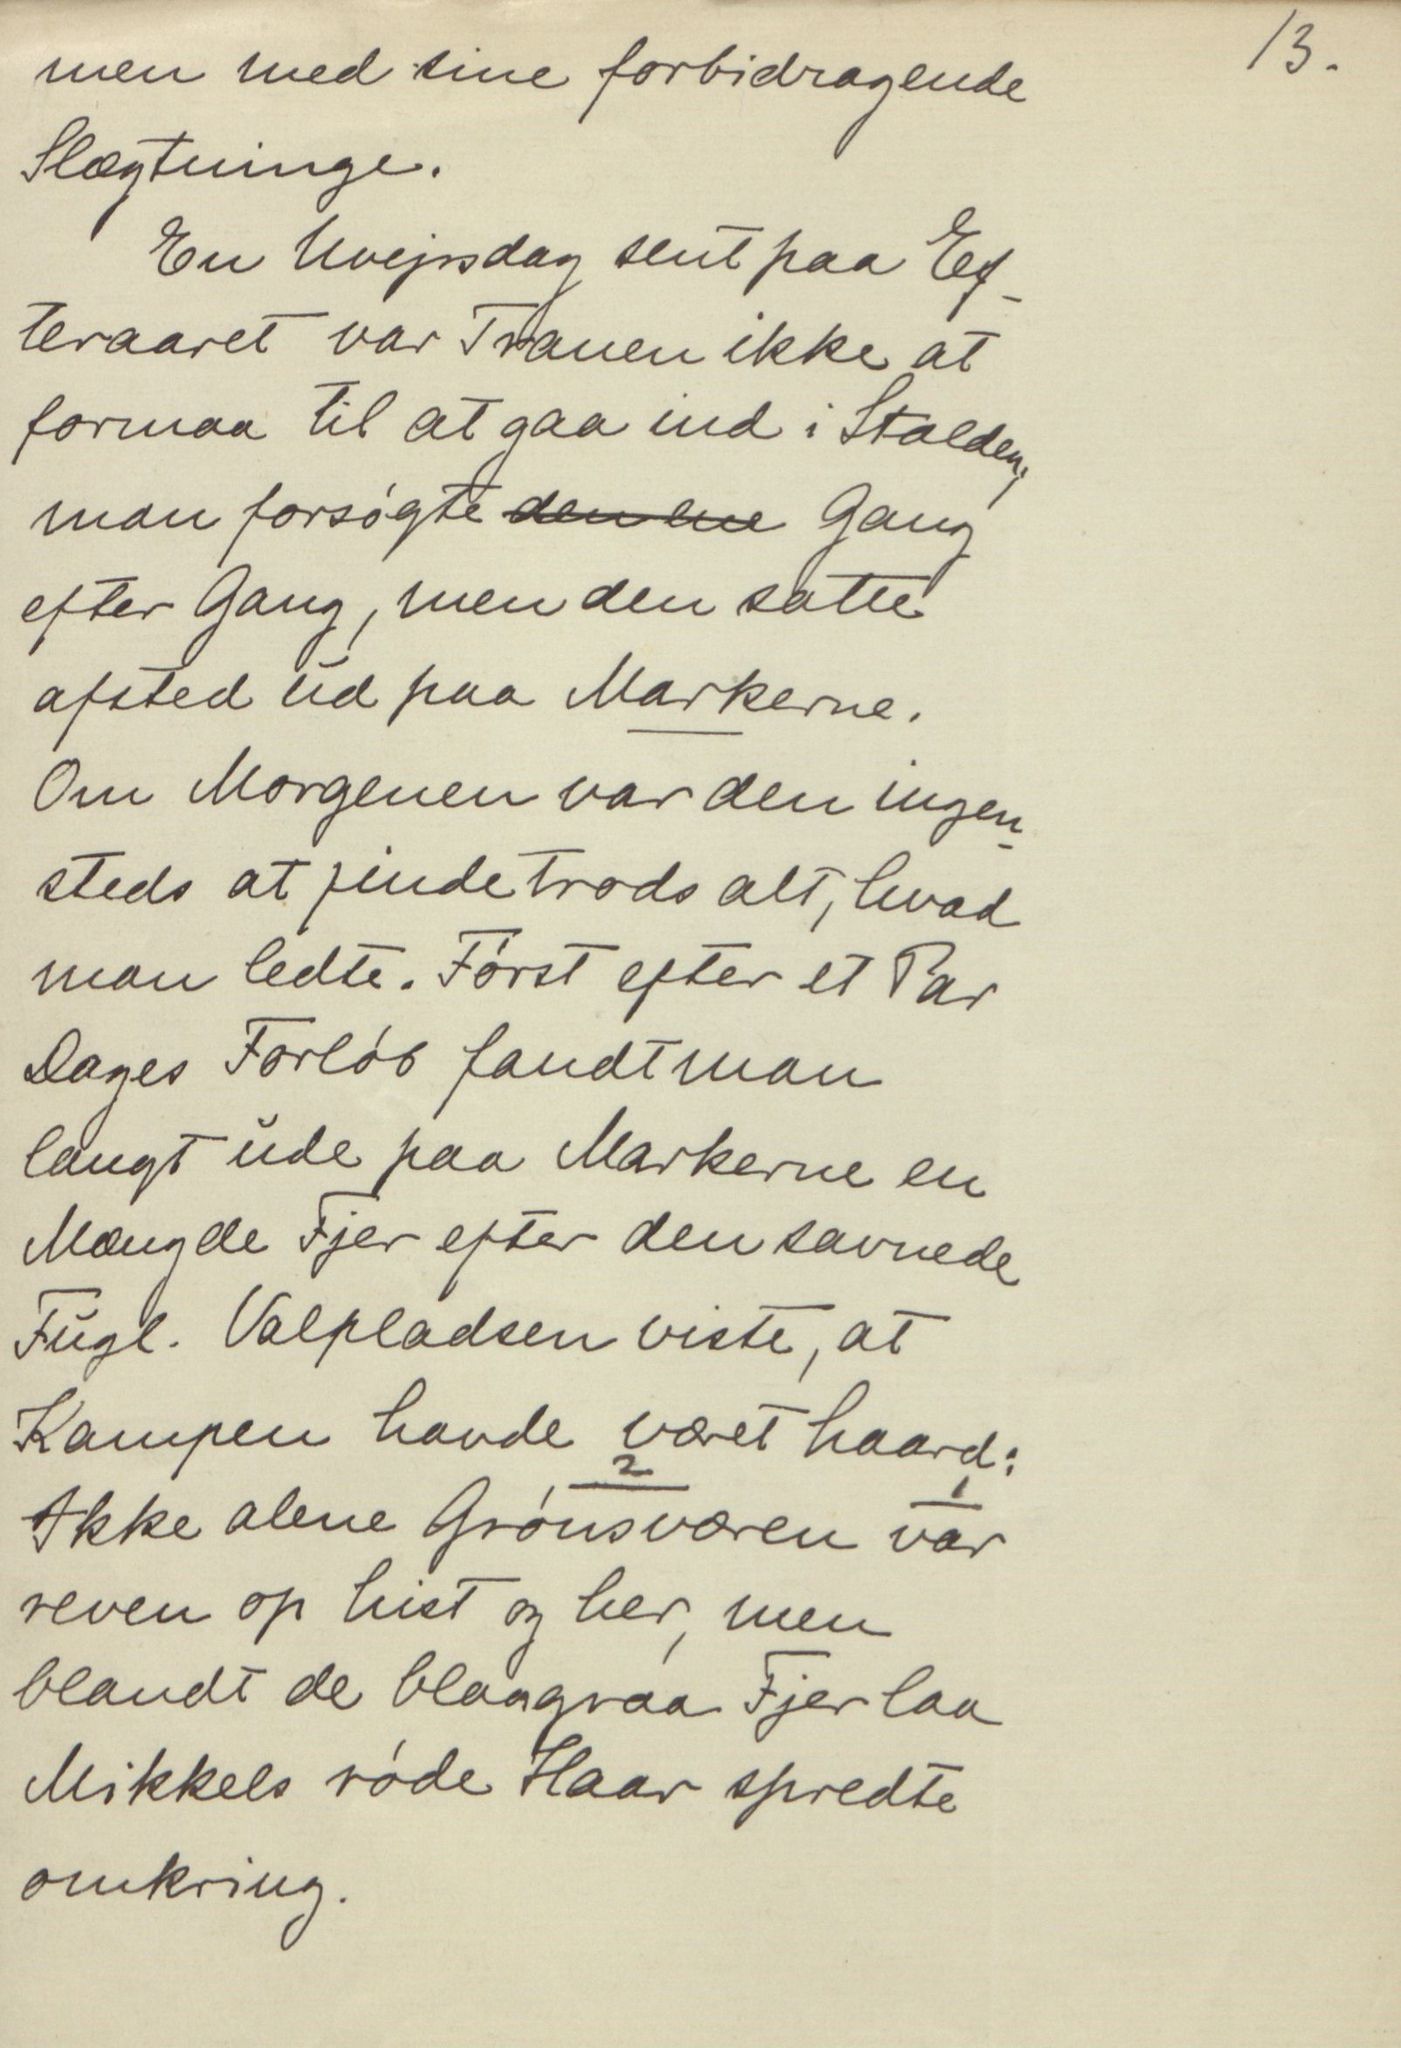 13.
men med sine forbidragende
Slægtninge.
En Uvejrsdag sent paa Ef-
teraaret var Tranen ikke at
formaa til at gaa ind i Stalden;
man forsøgte den ene Gang
efter Gang, men den satte
afsted ud paa Markerne.
Om Morgenen var den ingen-
steds at finde trods alt, hvad
man ledte. Først efter et Par
Dages Forløb fandt man
langt ude paa Markerne en
Mængde Fjer efter den savnede
Fugl. Valpladsen viste, at
Kampen havde været haard:
2 1
Ikke alene Grønsværen var
reven op hist og her, men
blandt de blaagraa Fjer laa
Mikkels røde Haar spredte
omkring.